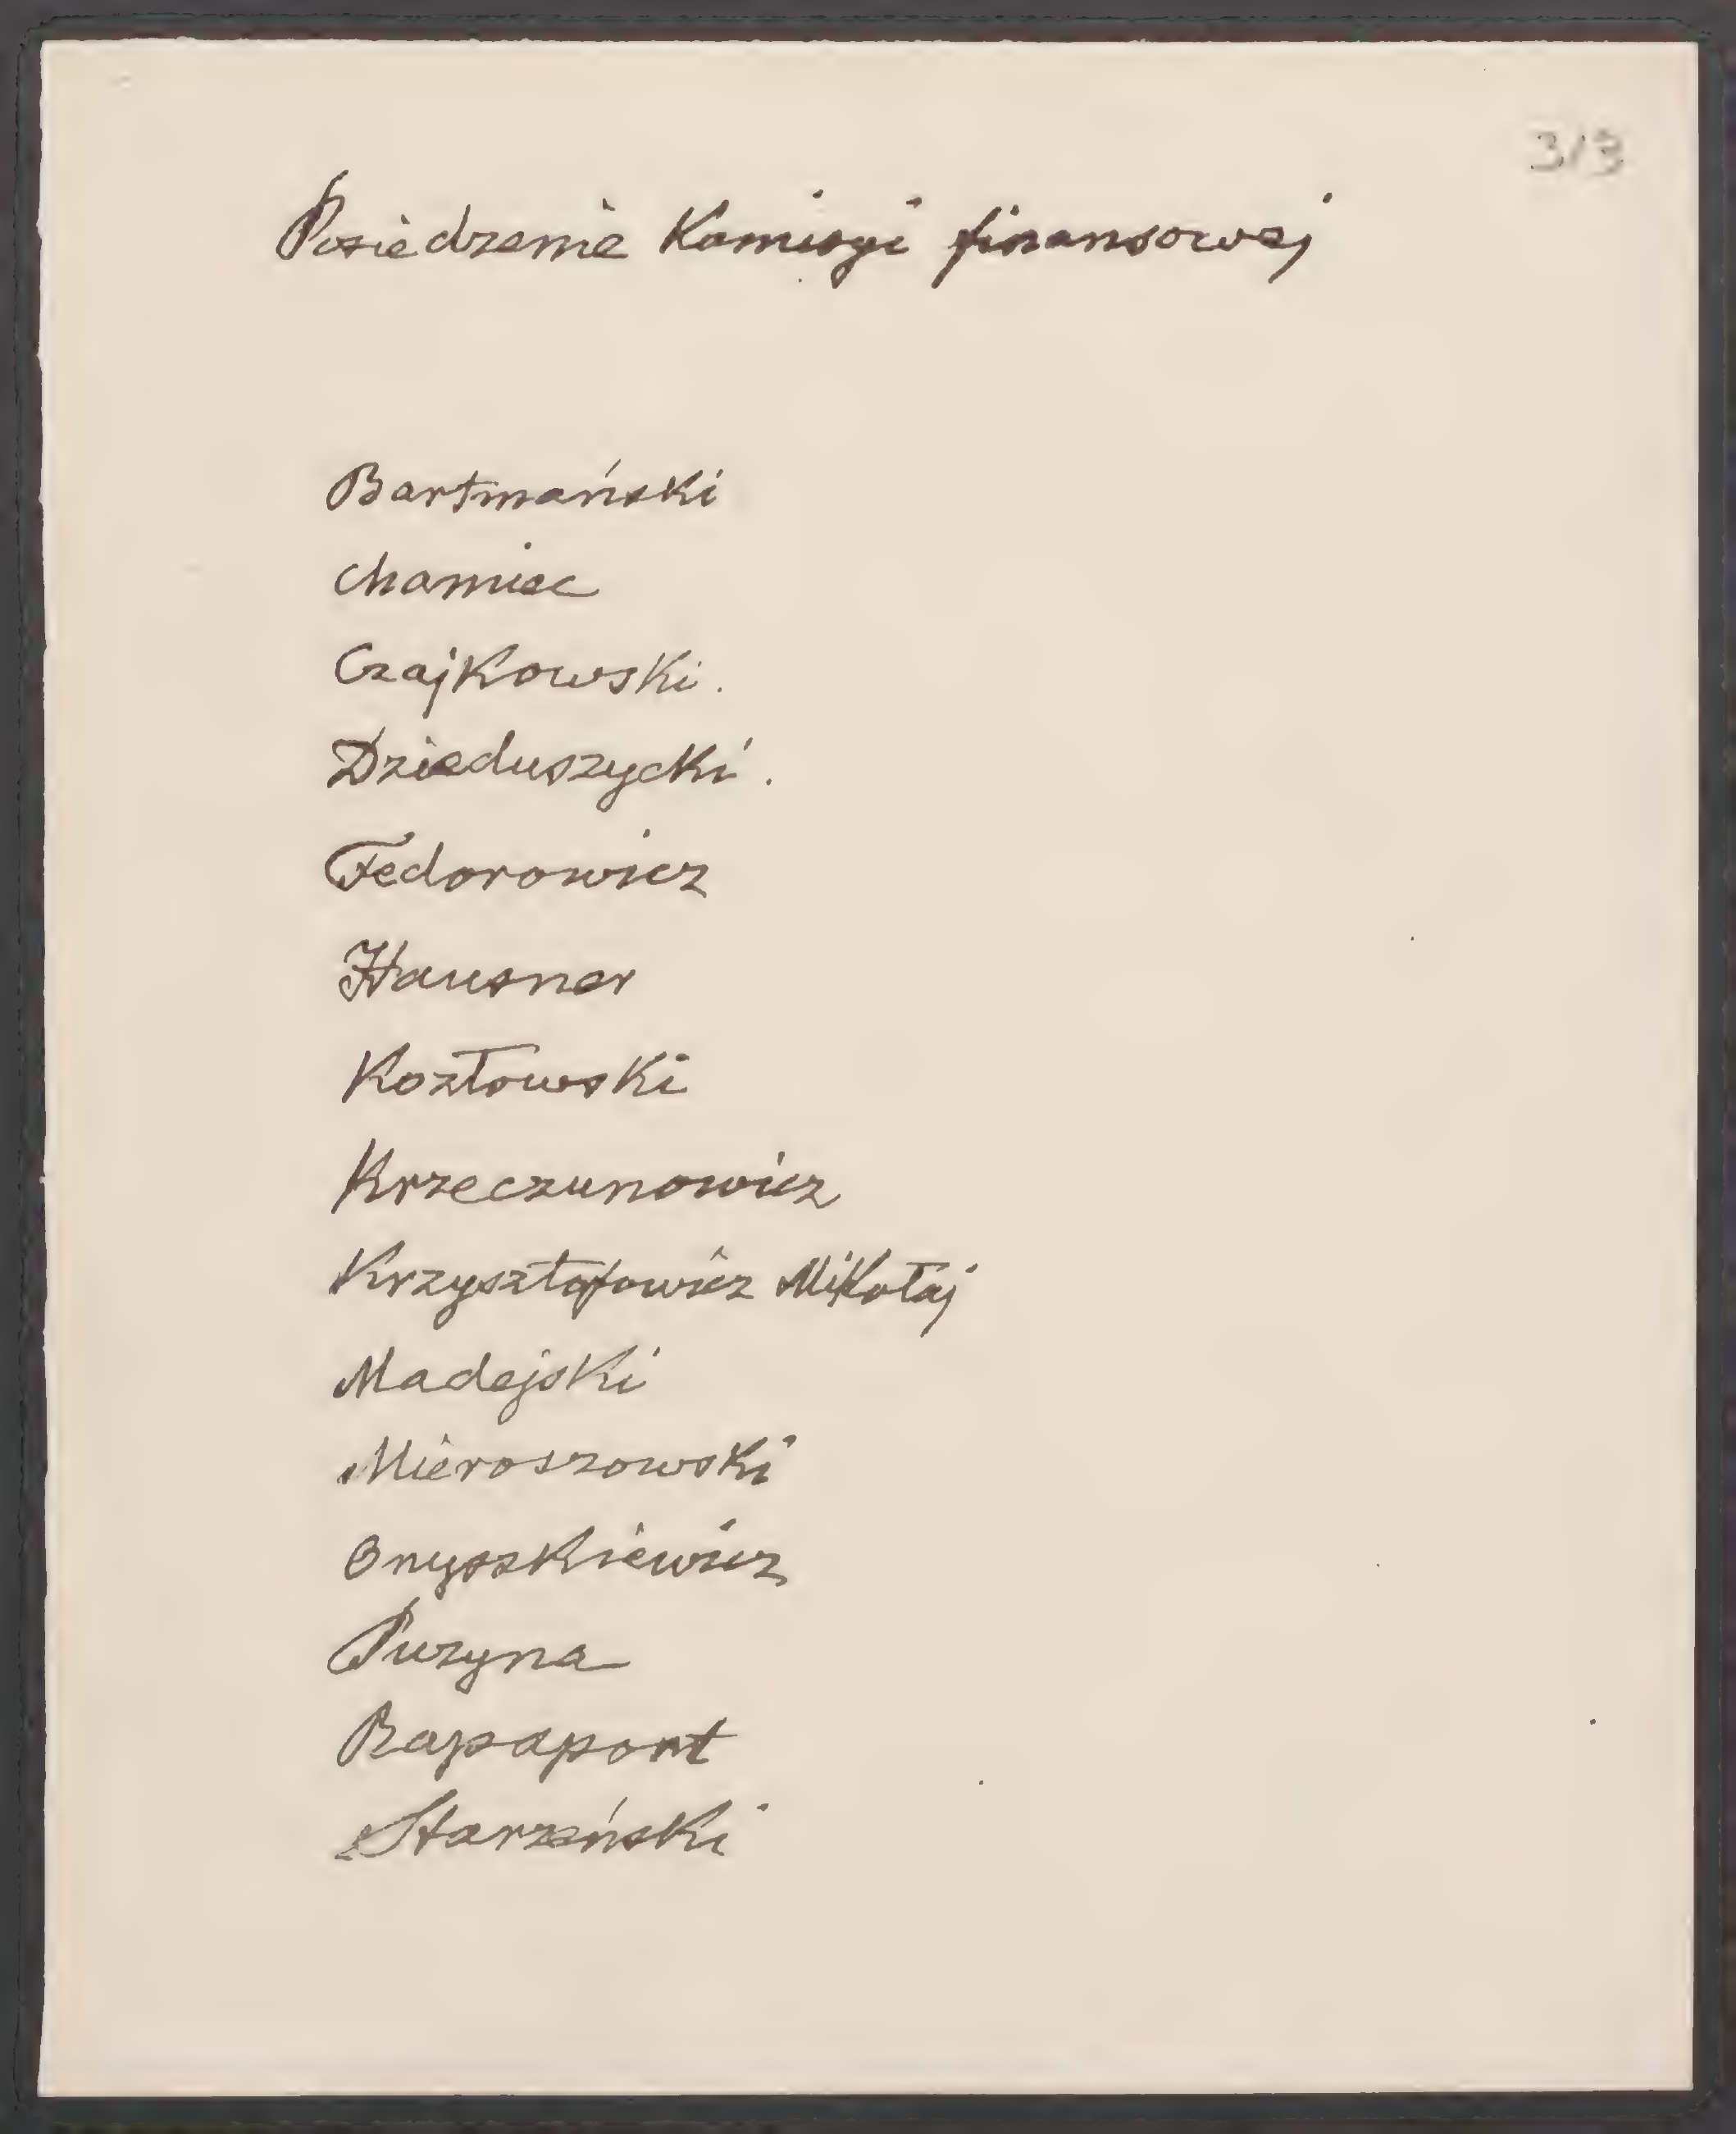 3/3
Posiedzenie Komisyi finansowej
Bartmański
Chamiec
Czajkowski.
Dzieduszycki.
Fedorowicz
Hausner
Kozłowski
Krzeczunowicz
Krzysztofowicz Mikołaj
Madejski
Mieroszowski
Onyszkiewicz
Puzyna
Rapaport
Starzeński